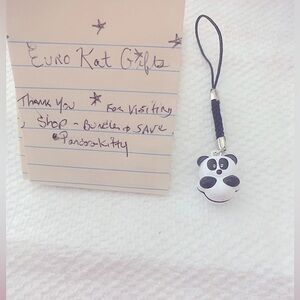 Euro Kat Gifts
Thank You For Visiting
Shop - Bundle & SAVE,
Pandorakitty